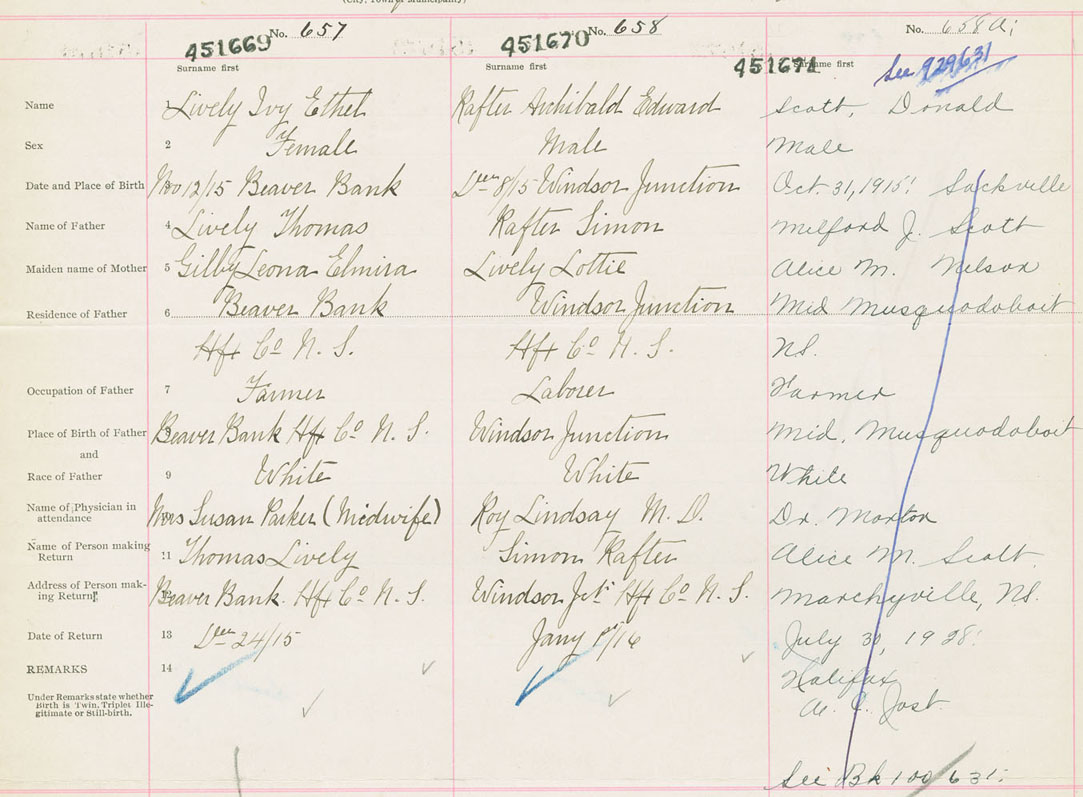 (City, Town or Municipality)
No. 657 No. 658 No. 658 A;
451669 451670 451671
Surname first Surname first Surname first See 929631
Name 1 Lively Ivy Ethel Rafter Archibald Edward Scott, Donald
Sex 2 Female Male Male
Date and Place of Birth Nov 12/15 Beaver Bank Decr 8/15 Windsor Junction Oct. 31, 1915! Sackville
Name of Father 4 Lively Thomas Rafter Simon Milford J. Scott
Maiden name of Mother 5 Gilby Leona Elmira Lively Lottie Alice M. Nelson
Residence of Father 6 Beaver Bank Windsor Junction Mid Musquodoboit
Hfx Co N. S. Hfx Co N. S. NS.
Occupation of Father 7 Farmer Laborer Farmer
Place of Birth of Father 8 Beaver Bank Hfx Co N. S. Windsor Junction Mid. Musquodoboit
and
Race of Father 9 White White White
Name of Physician in
attendance 10 Mrs Susan Parker (Midwife) Roy Lindsay M. D. Dr. Morton
Name of Person making
Return 11 Thomas Lively Simon Rafter Alice M. Scott.
Address of Person mak-
ing Return 12 Beaver Bank. Hfx Co N. S. Windsor Jct. Hfx Co N. S. NS.
Date of Return 13 Decr 24/15 Jany 1st/16 July 1928!
REMARKS 14 Halifax
Under Remarks state whether
Birth is Twin, Triplet Ille-
gitimate or Still-birth.
A. C. Jost.
See Bk 100 631.